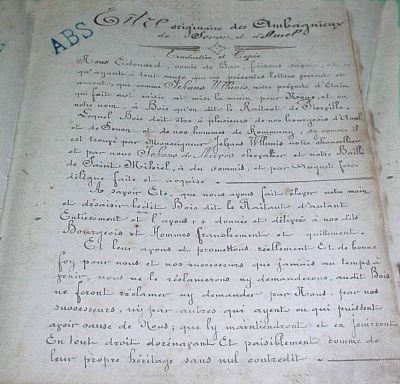 ABS
Titre originaire des Ambagnieux
de Senon et d'Amel
Traduction et Copie
Nous Edouard, comte de Bar, faisons savoir, et ce
qu'ayant à tout ceux que ces présentes lettres verront et
auront, que comme Jehans Wllumis, notre prévôte d'Etain
qui fait est saisir et mise la main, pour Nous, et en
notre nom, à Bois qu'on dit le Raitant de
Lequel Bois doit être à plusieurs de nos bourgeois d'Amel
et de Senon, et de nos hommes de Rompnay, se comme il
est trouvé par Monseigneur Jehans Wlluns notre chancellier
et par nous Jehans de chevalier et notre Bailli
de Saint Mihiel, à du commis, et par
délique faite et acquise.
A savoir Ete, que nous ayons fait ôteger notre main
et dessaisir ledit Bois dit le Raitant d'autant
Entièrement et l'ayons donnée et délivrée à nos dits
Bourgeois et Hommes franchement et quittement.
Et leur ayons et promettons réellement Et de bonne
foy pour nous et nos successeurs que jamais au temps à
venir, nous ne le réclamerons ny demanderons, audit Bois
ne feront réclamer ny demander par Nous, par nos
successeurs, ny par autres qui ayent ou qui puissent
avoir cause de Nous; que ly maintiendront et en jouiront
En tout droit dorénavant Et paisiblement comme de
leur propre héritage sans nul contredit.